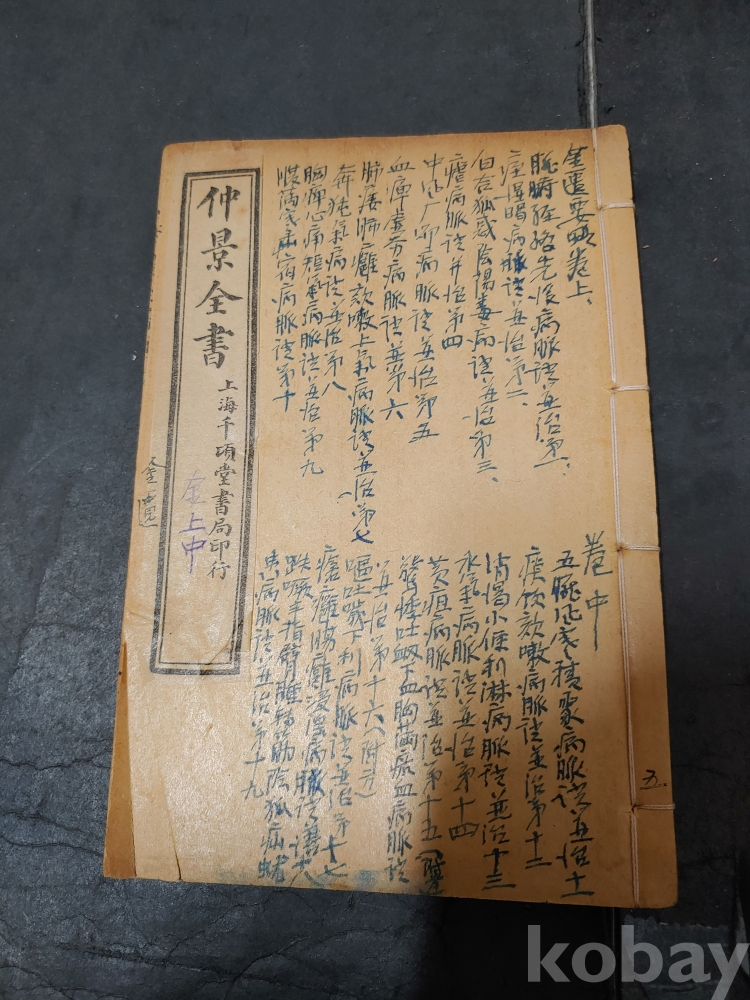 金匱要畧卷上、
臟腑經絡先後病脈証並治第一、
痓濕暍病脈証並治第二、
百合狐惑陰陽毒病証並治第三、
瘧病脈証并治第四
中風厂節病脈証並治第五
血痺虛劳病脈証並第六
肺痿肺癰欬嗽上氣病脈証並治第七
奔豚氣病証並治第八
胸痺心痛短氣病脈証並治第九
腹滿寒疝宿病脈証第十
卷中
五臟風寒積聚病脈証並治十一
痰飲欬嗽病脈証並治第十二
消渴小便利淋病脈証並治十三
水氣病脈証並治第十四
黃疸病脈証並治第十五
驚悸吐衄下血胸滿瘀血病脈証
並治第十六(附方)
嘔吐噦下利病脈証並治第十七
瘡癰腸癰浸淫病脈証並十八
趺蹶手指臂腫轉筋陰狐疝蚘
虫病脈証並治第十九
仲景全書
上海千頃堂書局印行
金上中
金匱
五
kobay